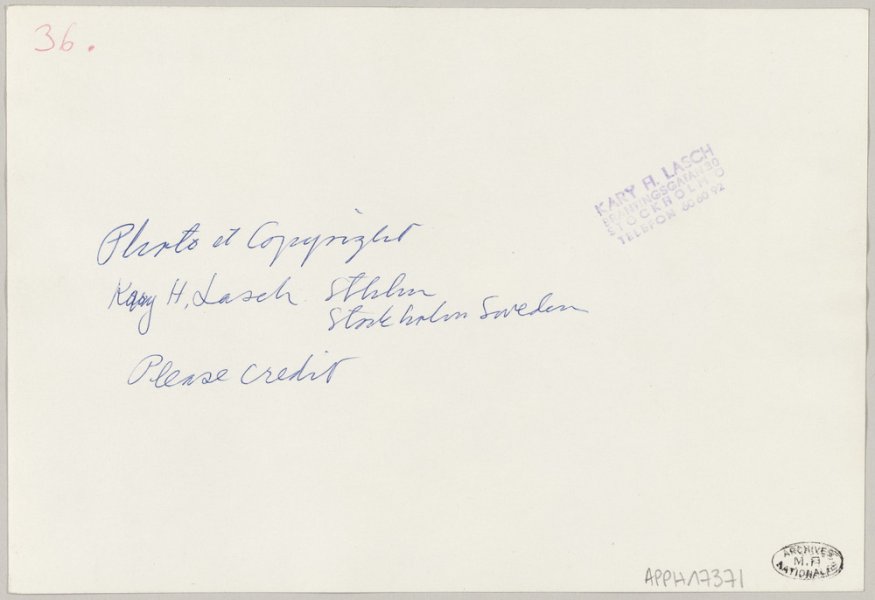 36.
KARY H. LASCH
BRANTINGSGATAN 30
STOCKHOLM Ö
TELEFON 60 60 92
Photo et Copyright
Kary H. Lasch Sthlm
Stockholm Sweden
Please credit
APPH17371
ARCHIVES
M.A
NATIONALES